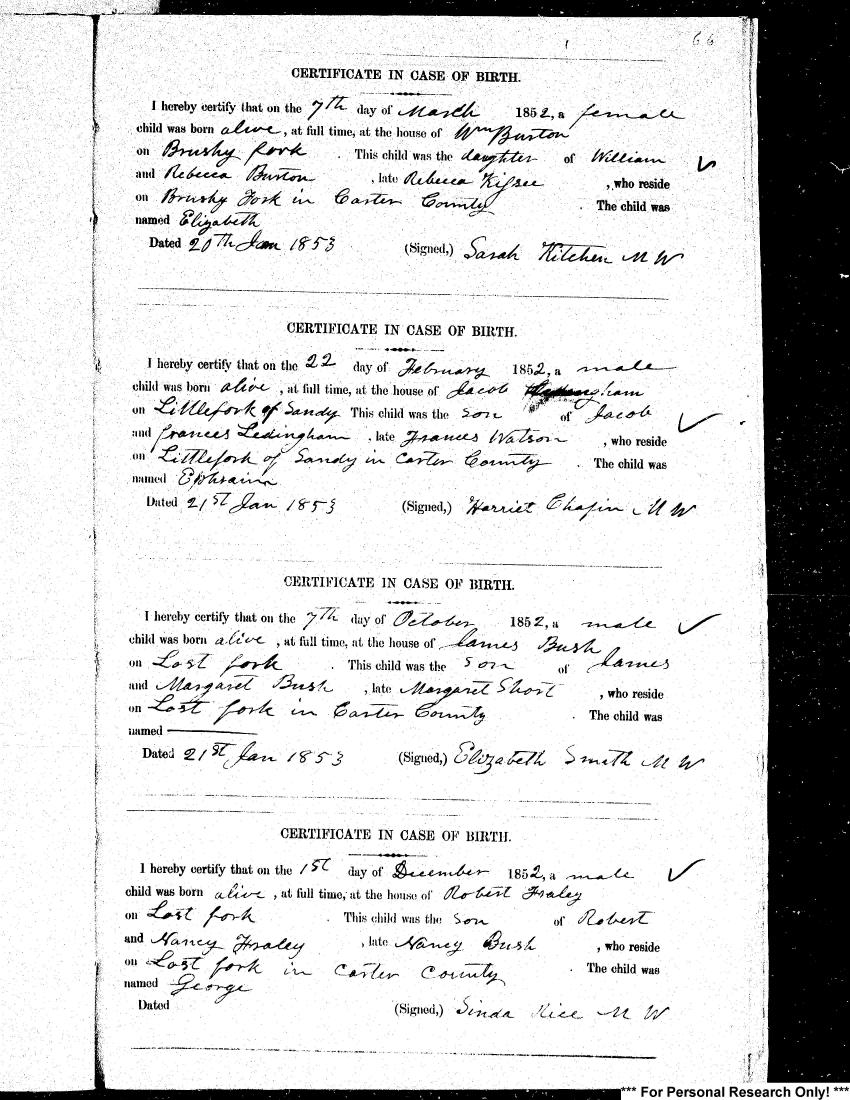 66
CERTIFICATE IN CASE OF BIRTH.
I hereby certify that on the 7th day of March 1852, a female
child was born alive, at full time, at the house of Wm Burton
on Brushy fork . This child was the daughter of William
and Rebecca Burton , late Rebecca , who reside
on Brushy Fork in Carter County . The child was
named Elizabeth
Dated 20th Jan 1853 (Signed,) Sarah Kitchen M W
CERTIFICATE IN CASE OF BIRTH.
I hereby certify that on the 22 day of February 1852, a male
child was born alive , at full time, at the house of Jacob
on Littlefork of Sandy This child was the son of Jacob
and Frances Ledingham , late Frances Watson , who reside
on Littlefork of Sandy in Carter County . The child was
named Ephraim
Dated 21st Jan 1853 (Signed,) Harriet Chapin M W
CERTIFICATE IN CASE OF BIRTH.
I hereby certify that on the 7th day of October 1852, a male
child was born alive , at full time, at the house of James Bush
on Lost fork . This child was the son of James
and Margaret Bush , late Margaret Short , who reside
on Lost fork in Carter County . The child was
named
Dated 21st Jan 1853 (Signed,) Elizabeth Smith M W
CERTIFICATE IN CASE OF BIRTH.
I hereby certify that on the 1st day of December 1852, a male
child was born alive , at full time, at the house of Robert Fraley
on Lost fork . This child was the son of Robert
and Nancy Fraley , late Nancy Bush , who reside
on Lost fork in Carter County . The child was
named George
Dated (Signed,) Sinda Rice M W
*** For Personal Research Only! ***